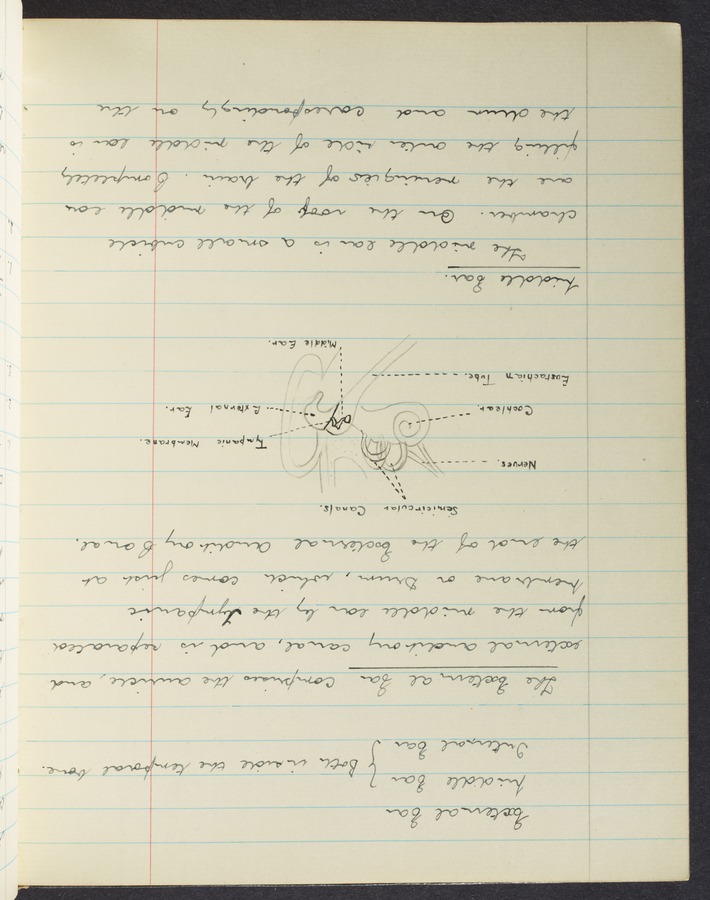 External Ear
Middle Ear } Both inside the temporal bone.
Internal Ear }
The External Ear comprises the auricle, and
external auditory canal, and is separated
from the middle ear by the Tympanic
Membrane or Drum, which comes just at
the end of the External Auditory Canal.
Semicircular Canals.
Nerves.
Tympanic Membrane.
Cochlear.
External Ear.
Eustachian Tube.
Middle Ear.
Middle Ear.
The middle ear is a small cubicle
chamber. On the roof of the middle ear
are the meninges of the brain. Completely
filling the outer side of the middle ear is
the drum and correspondingly on the